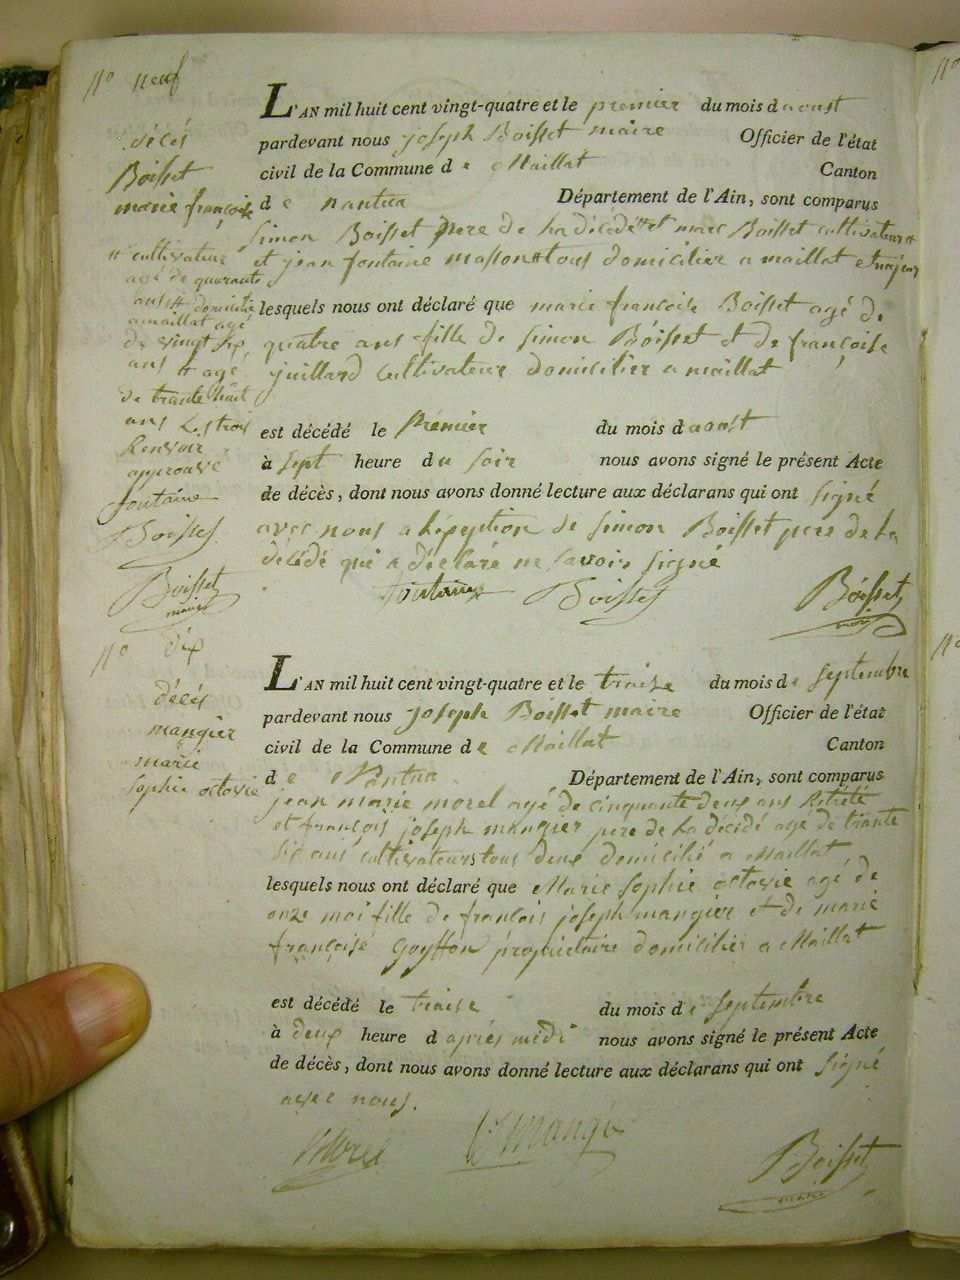 N° neuf
décès
Boisset
marie françoise
# cultivateur
agé de quarante
ans # domicilié
a maillat agé
de vingt six
ans # agé
de trante huit
ans Les trois
Renvoir
approuvé
fontaine
Boisset
Boisset
maire
L'AN mil huit cent vingt-quatre et le premier du mois d aoust
pardevant nous joseph Boisset maire Officier de l'état
civil de la Commune d e Maillat Canton
d e nantua Département de l'Ain, sont comparus
Simon Boisset pere de la décédé # et marc Boisset cultivateur #
et jean fontaine masson # tous domicilier a maillat et majeur
lesquels nous ont déclaré que marie françoise Boisset agé de
quatre ans fille de simon Boisset et de françoise
juillard cultivateur domicilier a maillat
est décédé le Premier du mois d aoust
à sept heure du soir nous avons signé le présent Acte
de décès, dont nous avons donné lecture aux déclarans qui ont signé
avec nous a lépeption de simon Boisset pere de la
décédé qui a déclaré ne savoir signé
fontaine Boisset Boisset
maire
N° dix
décès
mangier
marie
sophie octavie
L'AN mil huit cent vingt-quatre et le traise du mois d e septembre
pardevant nous joseph Boisset maire Officier de l'état
civil de la Commune d e Maillat Canton
d e Nantua Département de l'Ain, sont comparus
jean marie morel agé de cinquante deux ans Retrété
et françois joseph mangier pere de la décédé agé de trante
six ans cultivateurs tous deux domicilié a Maillat
lesquels nous ont déclaré que Marie sophie octavie agé de
onze moi fille de francois joseph mangier et de marie
françoisé Goyffon propriétaire domicilier a Maillat
est décédé le traise du mois d e septembre
à deux heure d après midi nous avons signé le présent Acte
de décès, dont nous avons donné lecture aux déclarans qui ont signé
avec nous.
Morel mangié Boisset
maire